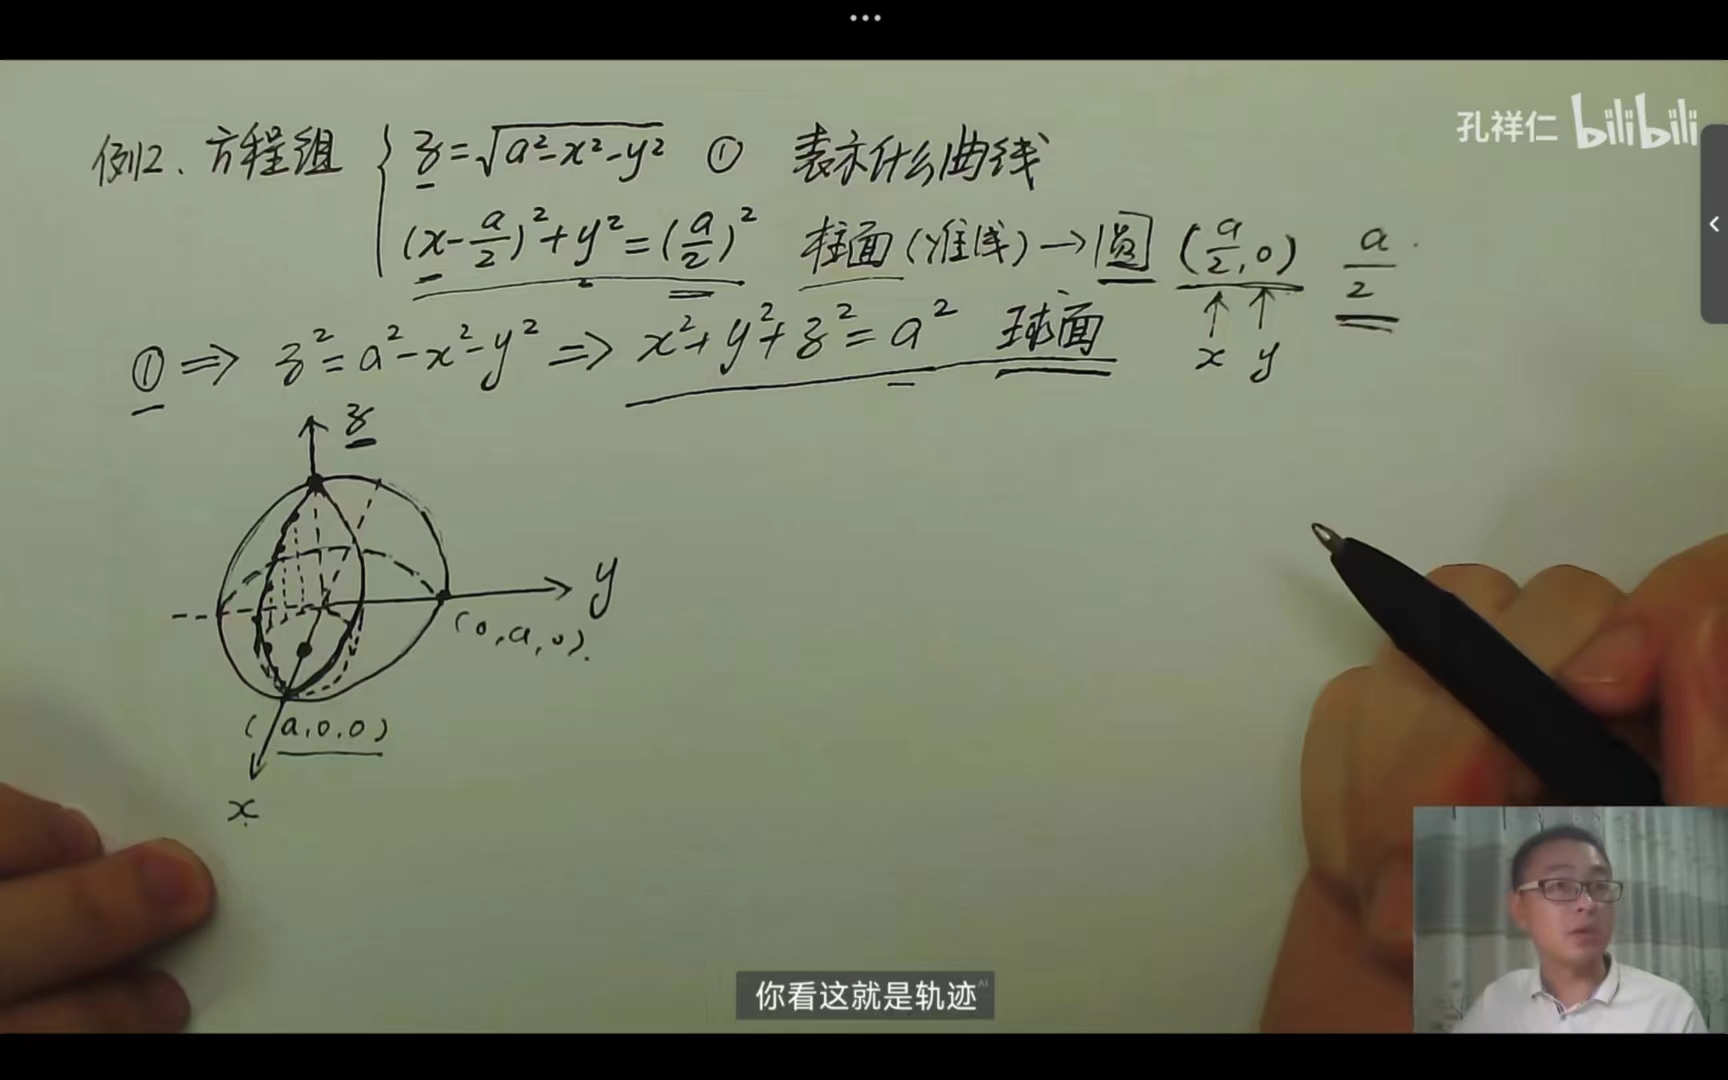 孔祥仁 bilibili
例2. 方程组 { z=√(a²-x²-y²) ① 表示什么曲线
(x-a/2)²+y²=(a/2)² 柱面(准线)→圆 (a/2,0) a/2
x y
①⇒ z²=a²-x²-y² ⇒ x²+y²+z²=a² 球面
z
y
(0,a,0).
(a,0,0)
x
你看这就是轨迹
AI